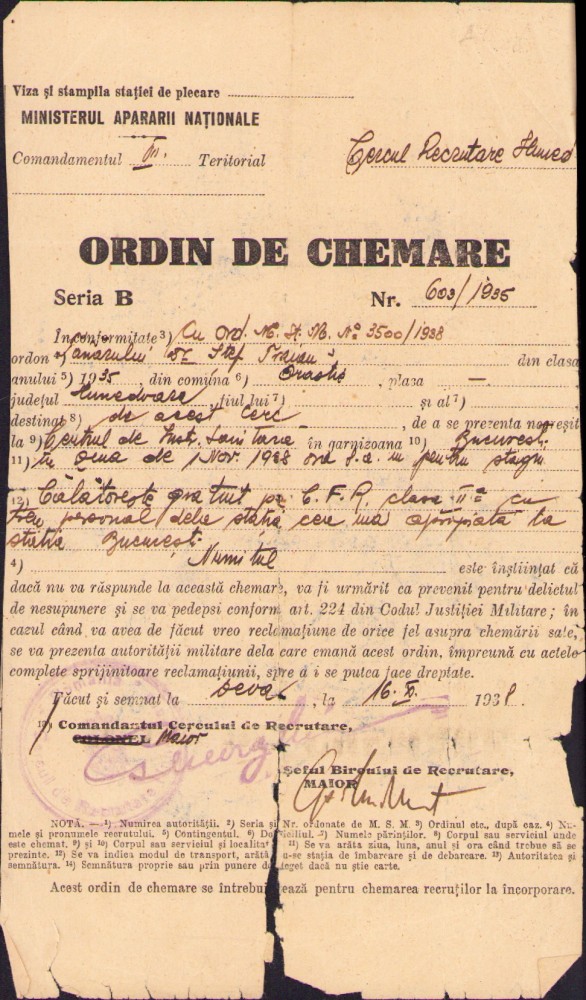 Viza și stampila stației de plecare
MINISTERUL APARARII NAȚIONALE
Comandamentul VI. Teritorial
Cercul Recrutare Huned
ORDIN DE CHEMARE
Seria B Nr. 603/1935
In conformitate 3) Cu ord. M. St. M. No 3500/1938
ordon din clasa
anului 5) 1935, din comúna 6) Orastie, plasa —
județul Hunedoara fiului 7) și al 7)
destinat 8) de acest Cerc, de a se prezenta negreșit
la 9) Centrul de Instr. Sanitara în garnizoana 10) Bucuresti
11) în ziua de 1 Nov. 1938 ora 8 a. m pentru stagiu
12) Călătorește gratuit pe C. F. R. clasa II-a cu
tren personal dela stația cea mai apropiata la
statia Bucuresti.
4) Numitul este înștiințat că
dacă nu va răspunde la această chemare, va fi urmărit ca prevenit pentru delictul
de nesupunere și se va pedepsi conform art. 224 din Codul Justiției Militare; în
cazul când va avea de făcut vreo reclamațiune de orice fel asupra chemării sale,
se va prezenta autorității militare dela care emană acest ordin, împreună cu actele
complete sprijinitoare reclamațiunii, spre a i se putea face dreptate.
Făcut și semnat la Deva, la 16. X. 1938
13) Comandantul Cercului de Recrutare,
COLONEL Maior
Șeful Biroului de Recrutare,
MAIOR
NOTĂ. — 1) Numirea autorității. 2) Seria și Nr. ordonate de M. S. M. 3) Ordinul etc., după caz. 4) Nu-
mele și pronumele recrutului. 5) Contingentul. 6) Domiciliul. 7) Numele părinților. 8) Corpul sau serviciul unde
este chemat. 9) și 10) Corpul sau serviciul și localitat 11) Se va arăta ziua, luna, anul și ora când trebue să se
prezinte. 12) Se va indica modul de transport, arătâ u-se stația de îmbarcare și de debarcare. 13) Autoritatea și
semnătura. 14) Semnătura proprie sau prin punere de deget dacă nu știe carte.
Acest ordin de chemare se întrebuințează pentru chemarea recruților la incorporare.